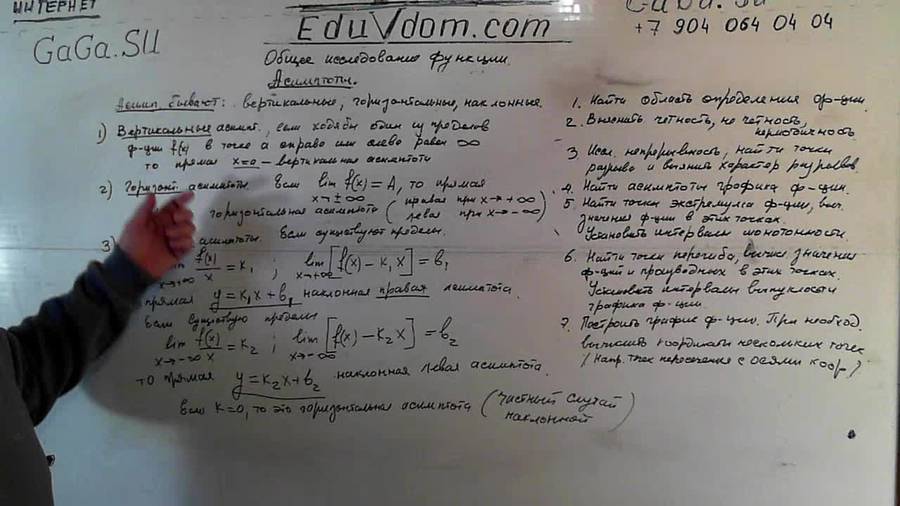 ИНТЕРНЕТ
GaGa.SU
EduVdom.com
+7 904 064 04 04
Общее исследование функции.
Асимптоты.
Асимп. бывают: вертикальные, горизонтальные, наклонные.
1) Вертикальные асимпт., если хотя бы один из пределов
ф-ции f(x) в точке a справо или слево равен ∞
то прямая x=a – вертикальная асимптота
2) Горизонт. асимптоты. Если lim f(x) = A, то прямая
x→±∞
горизонтальная асимптота (правая при x→+∞
левая при x→-∞)
3) асимптоты. Если существуют пределы.
lim f(x)/x = K₁ ; lim [f(x) – K₁ x] = b₁
x→+∞ x→+∞
прямая y=K₁x+b₁ наклонная правая асимптота.
Если существую пределы
lim f(x)/x = K₂ ; lim [f(x) – K₂ x] = b₂
x→-∞ x→-∞
то прямая y=K₂x+b₂ наклонная левая асимптота.
Если K=0, то это горизонтальная асимптота (частный случай
наклонной)
1. Найти область определения ф-ции.
2. Выяснить четность, не четность,
периодичность
3. Иссл. непрерывность, найти точки
разрыва и выяснить характер разрывов.
4. Найти асимптоты графика ф-ции.
5. Найти точки экстремума ф-ции, выч.
значение ф-ции в этих точках.
Установить интервалы монотонности.
6. Найти точки перегиба, вычисл значения
ф-ции и производных в этих точках.
Установить интервалы выпуклости
графика ф-ции.
7. Построить график ф-ции. При необход.
вычислить координаты нескольких точек
(Напр. точек пересечения с осями коор.)